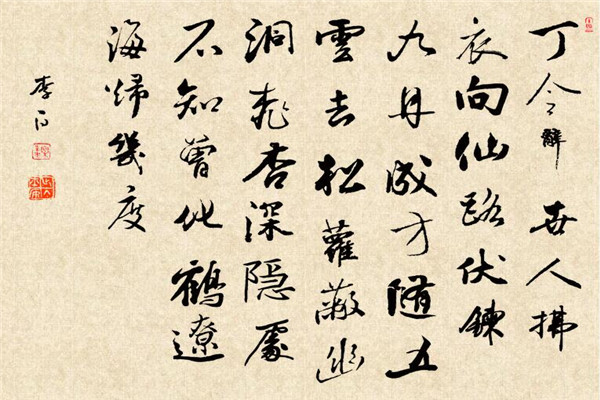 丁令辭世人拂
衣向仙路伏鍊
九丹成方隨五
雲去松蘿蔽幽
洞桃杏深隱處
不知曾化鶴遼
海歸幾度
李白